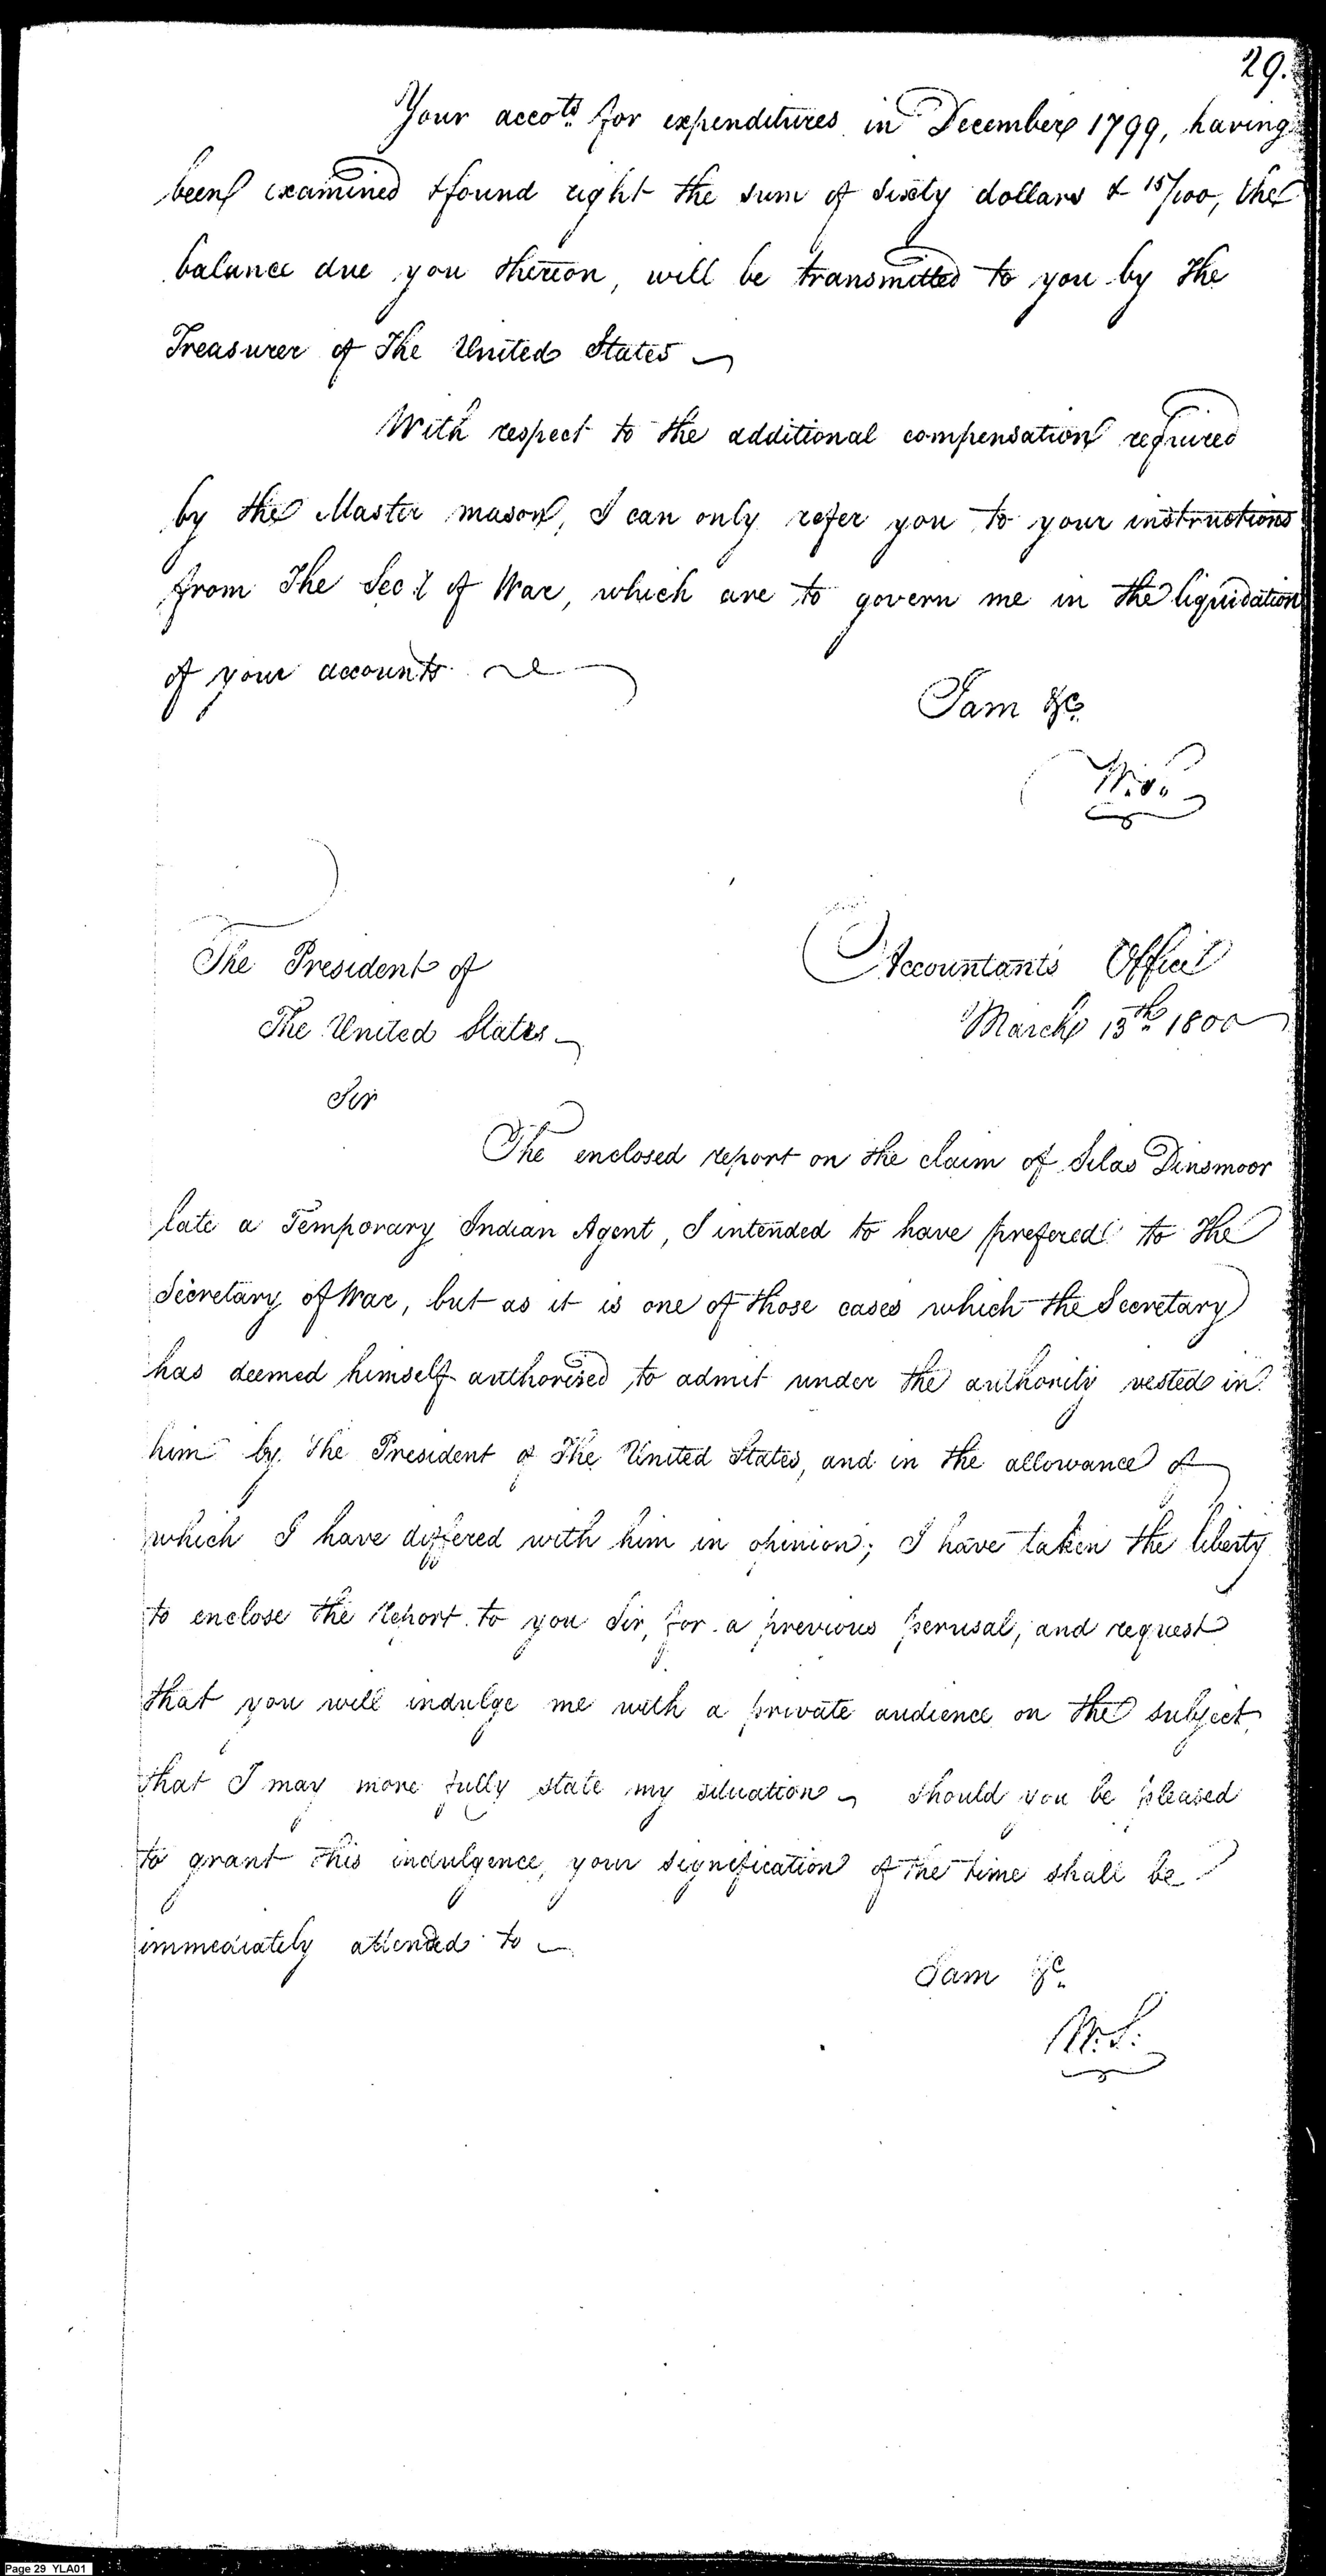 29.
Your accots. for expenditures in December 1799, having
been examined & found right the sum of sixty dollars & 15/100, the
balance due you thereon, will be transmitted to you by the
Treasurer of the United States
With respect to the additional compensation required
by the Master mason, I can only refer you to your instructions
from The Secy of War, which are to govern me in the liquidation
of your accounts.
I am &c.
W.S.
The President of
The United States
Accountants Office
March 13th 1800
Sir
The enclosed report on the claim of Silas Dinsmoor
late a Temporary Indian Agent, I intended to have prefered to the
Secretary of War, but as it is one of those cases which the Secretary
has deemed himself authorised to admit under the authority vested in
him by The President of The United States, and in the allowance of
which I have differed with him in opinion; I have taken the liberty
to enclose the Report to you Sir, for a previous perusal, and request
that you will indulge me with a private audience on the subject,
that I may more fully state my situation should you be pleased
to grant this indulgence, your signification of the time shall be
immediately attended to
I am &c.
W.S.
Page 29 YLA01